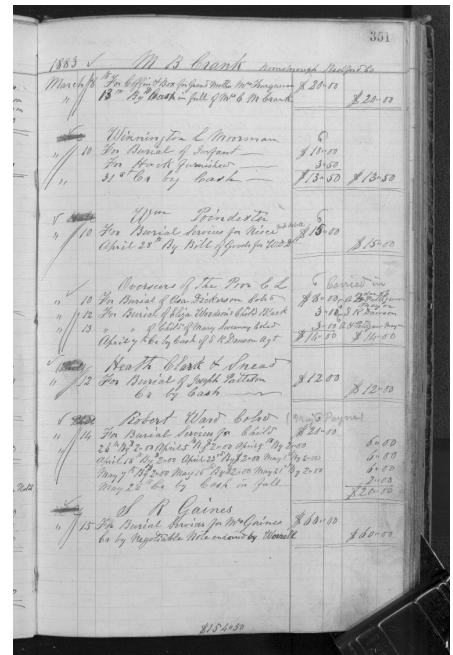 351
1883 M B Crank Bedford Co
March 8 th For Coffin & Box for Grand Mother Mrs Ferguson $20-00
" 13th By Cash in full of Mrs C M Crank $20-00
Winnington L Moorman
" 10 For Burial of Infant $10-00
For Hack furnished 3-50
" 31st Cr by Cash $13-50 $13-50
Wm Poindexter
" 10 For Burial Services for Niece $15-00
April 28th By Bill of Goods for $15-00
Overseers of the Poor C L Carried in
" 10 For Burial of Dickerson Cold $8-00
" 12 For Burial of Eliza Child Black 3-00 S R Dawson
" 13 " " of Child of Mary Cold 3-00
April 7th Cr by Cash of S R Dawson Agt $14-00 $14-00
Heath Clark & Snead
" 12 For Burial of Joseph Patteson $12 00
Cr by Cash $12-00
Robert Ward Cold (Payne)
" 14 For Burial Services for Child $20-00
26th By 2-00 April 5th By 2-00 April 9th By 2-00 6-00
April 14th By 2-00 April 23rd By $2-00 May 1st By 2-00 6-00
May 7th By 2-00 May 16th By $2-00 May 21st By 2-00 6-00
May 26th Cr by Cash in full 2-00
$20-00
S R Gaines
" 15 For Burial Services for Mrs Gaines $60-00
Cr by Negotiable Note endorsed by $60-00
$154-50